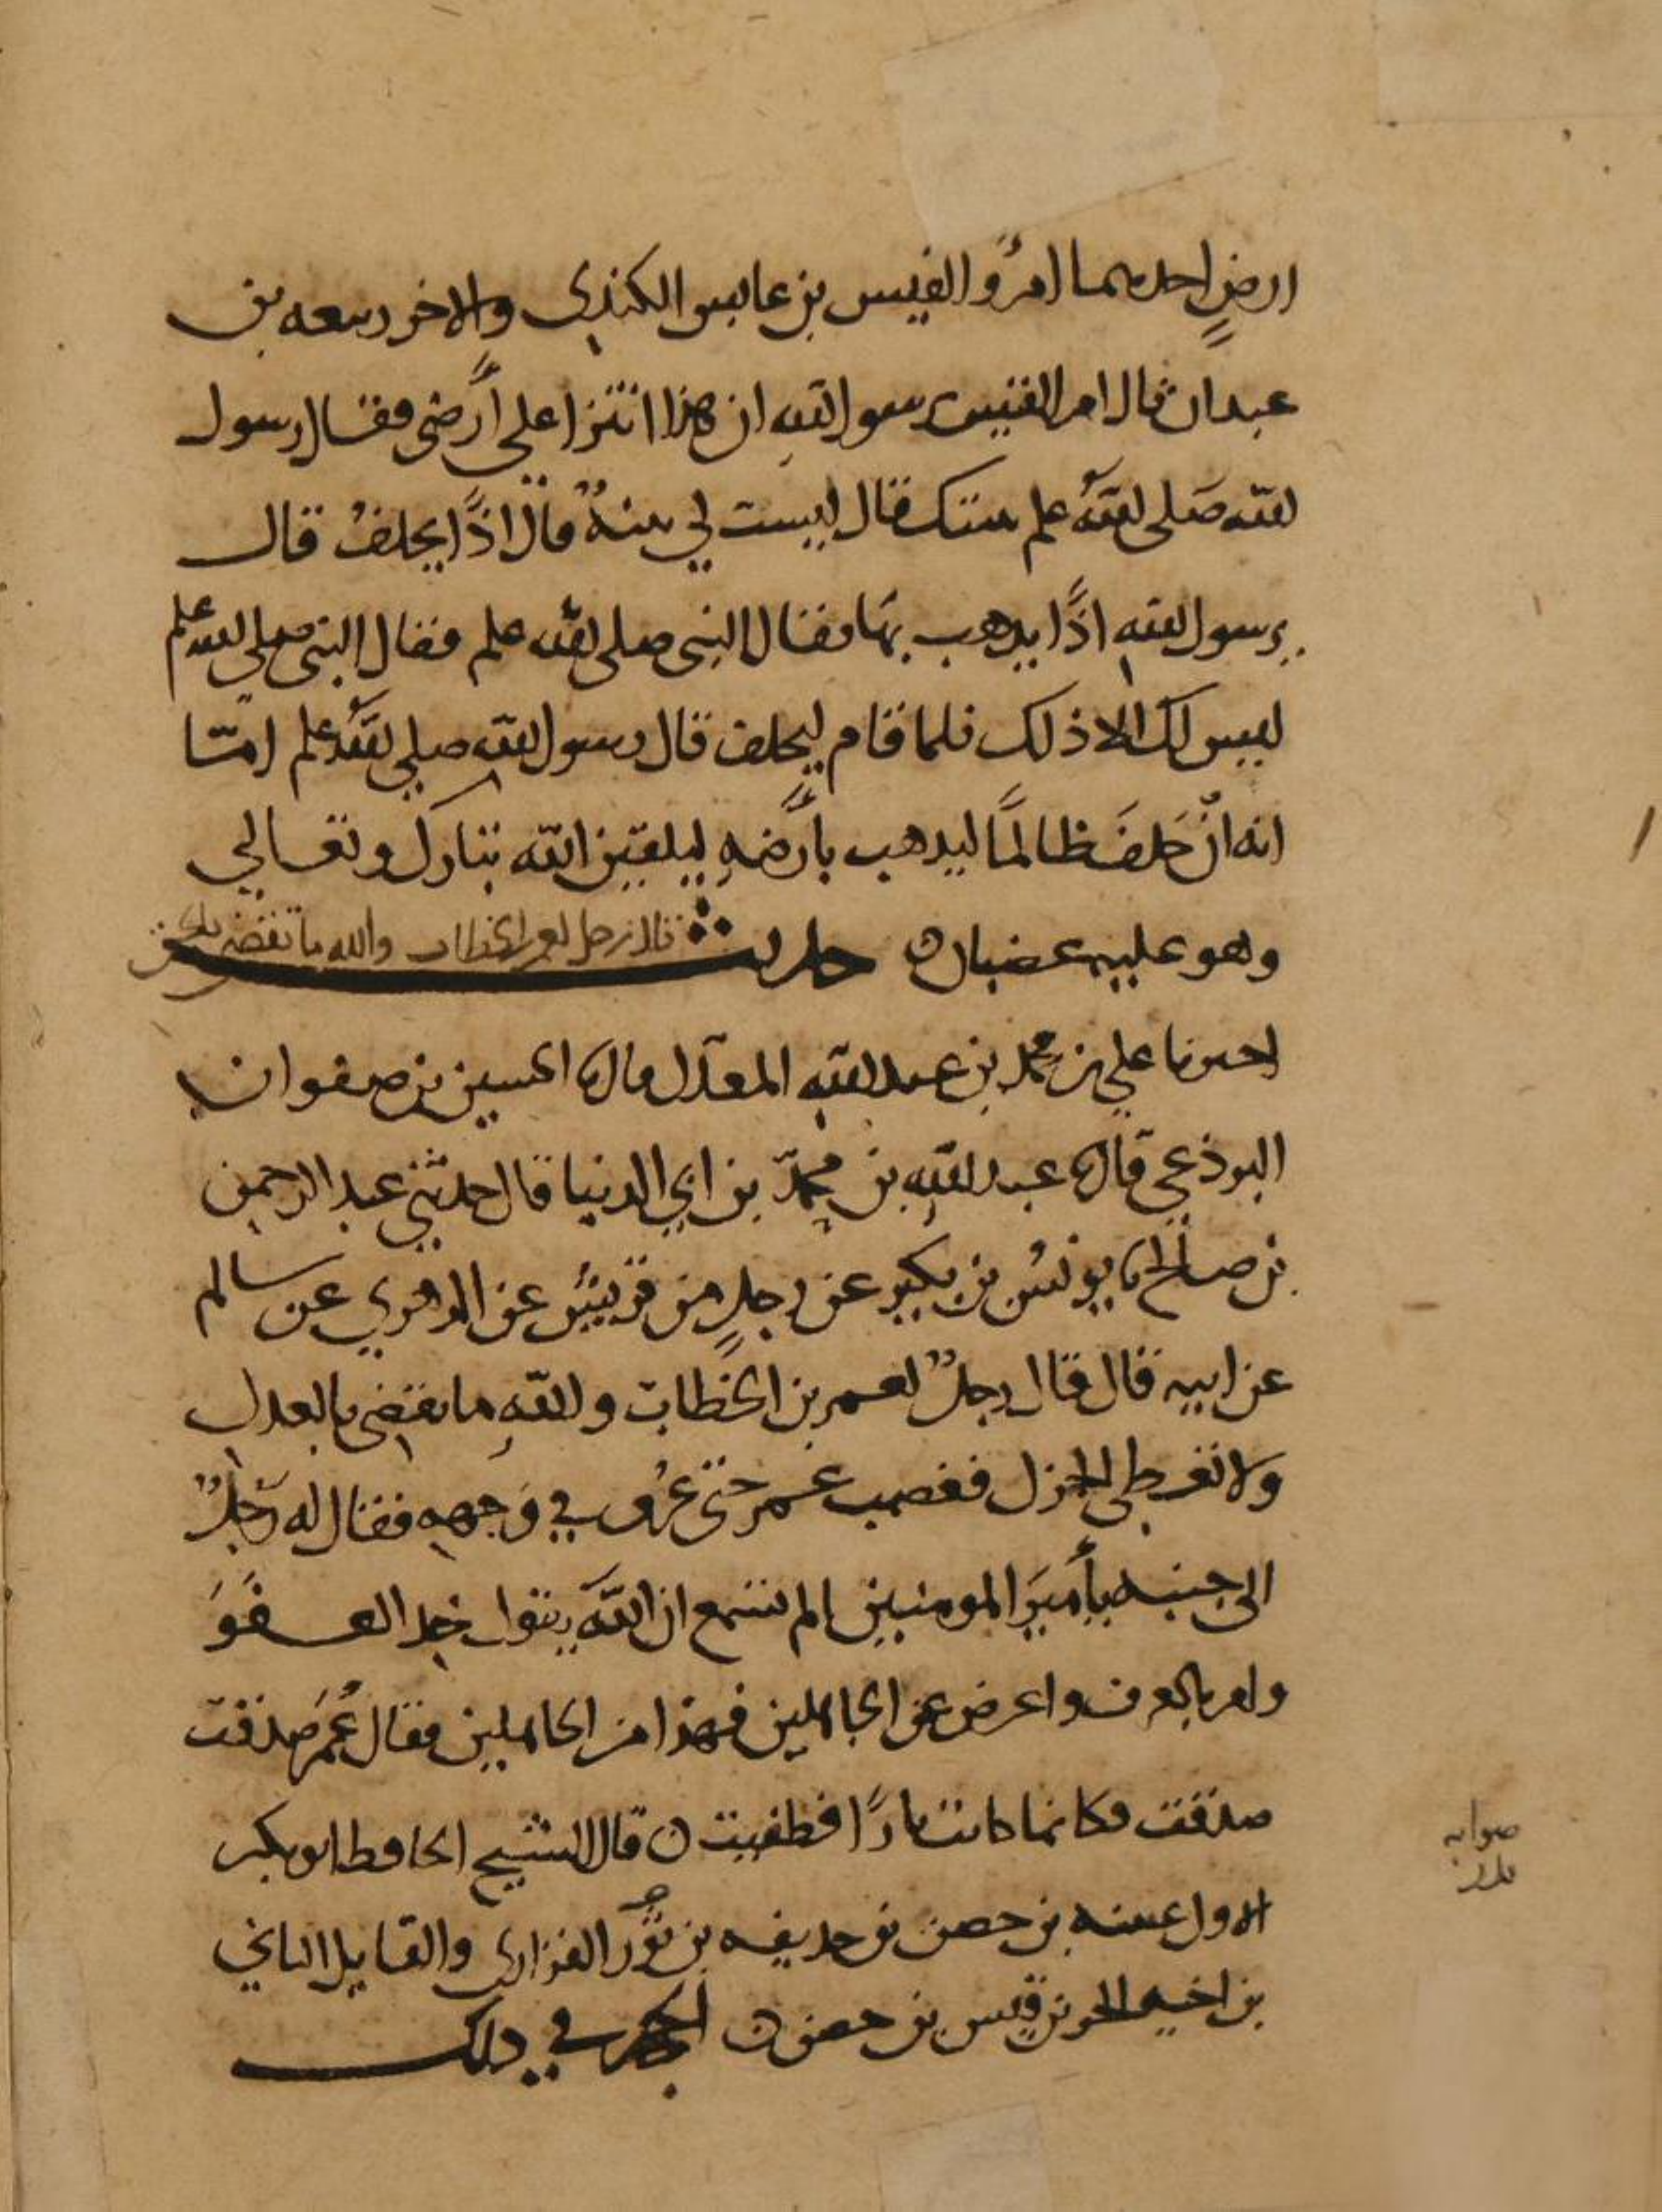 ارضٍ احدهما امرؤ القيس بن عابس الكندي والاخر ربيعه بن
عبدان قال امر القيس يرسول الله ان هذا انتزا على أرضى فقال رسول
الله صَلى اللهُ علم بينتك قال ليست لي بينةٌ قال اذًا يحلفُ قال
يرسول اللهِ اذًا يذهب بها فقال النبى صلى الله علم فقال النبى صلى الله علم
ليس لك الا ذلك فلما قام ليحلف قال رسول الله صلى الله علم امّا
انه انْ حَلفَ ظالمًا ليذهب بأرضهِ ليلقين الله تبارك وتعالى
وهو عليه غضبان ٥ حديث قال رجل لعمر بن الخطاب والله ما تقضى بالحق
اخبرنا علي بن محمد بن عبد اللهِ المعدّل قال نا الحسين بن صفوان
البرذعي قال نا عبد اللهِ بن محمّد بن ابي الدنيا قال حدثني عبد الرحمن
بن صالح نا يونسُ بن بكير عن رجلٍ من قريشٍ عن الزهري عن سالم
عن ابيه قال قال رجلٌ لعمر بن الخطاب واللهِ ما تقضى بالعدل
ولا تعطى الجزل فغضب عمر حتّى عُرف في وَجههِ فقال له رَجلٌ
الى جنبه يأميرَ المومنين الم تسمع ان اللهَ يقول خذ العفوَ
وامر بالعرف واعرض عن الجاهلين فهذا من الجاهلين فقال عُمَر صَدقت
صدقت فكانما كانت نارًا فطفيت ٥ قال الشيخ الحافظ ابو بكر
الاول عيينه بن حصن بن حذيفه بن بَدْر الفزارى والقايل الثاني
بن اخيه الحر بن قيس بن حصن ٥ الحجه في ذلك
صوابه
بدر